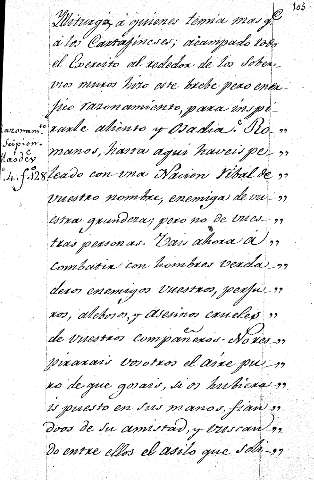 105
Iliturgi, á quienes temia mas qe
á los Cartagineses; acampado todo
el Exercito al rededor de los sober-
vios muros hizo este brebe pero enfa-
tico razonamiento, para inspi-
rarle aliento y osadia: Ro-"
manos, hasta aqui haveis pe-"
leado con una Nacion ribal de"
vuestro nombre, enemigas de vu-"
estra grandeza; pero no de vues-"
tras personas. Vais ahora á"
combatir con hombres verda-"
deros enemigos vuestros, perfi-"
ros, alebosos, y asesinos crueles"
de vuestros compañeros. No res-"
pirarais vosotros el aire pu-"
ro de que gozais, si os hubiera-"
is puesto en sus manos, fian-"
doos de su amistad, y buscan-"
do entre ellos el asilo que soli-"
razonamto
Scipion
4. fo 128